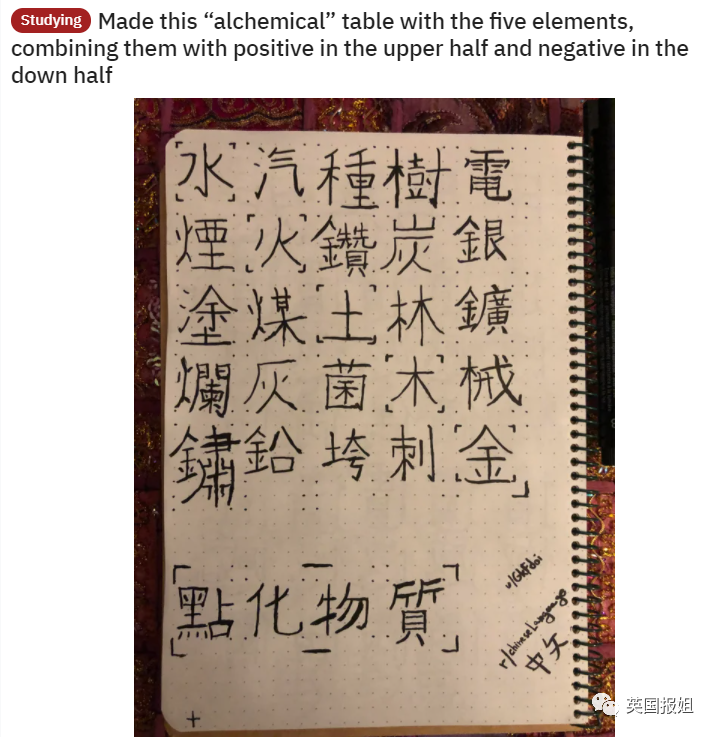 Studying Made this “alchemical” table with the five elements,
combining them with positive in the upper half and negative in the
down half
水 汽 種 樹 電
煙 火 鑽 炭 銀
塗 煤 土 林 鑛
爛 灰 菌 木 械
鏽 鉛 垮 刺 金
點化物質
u/GkFdoi
r/chineseLanguage
中文
英国报姐